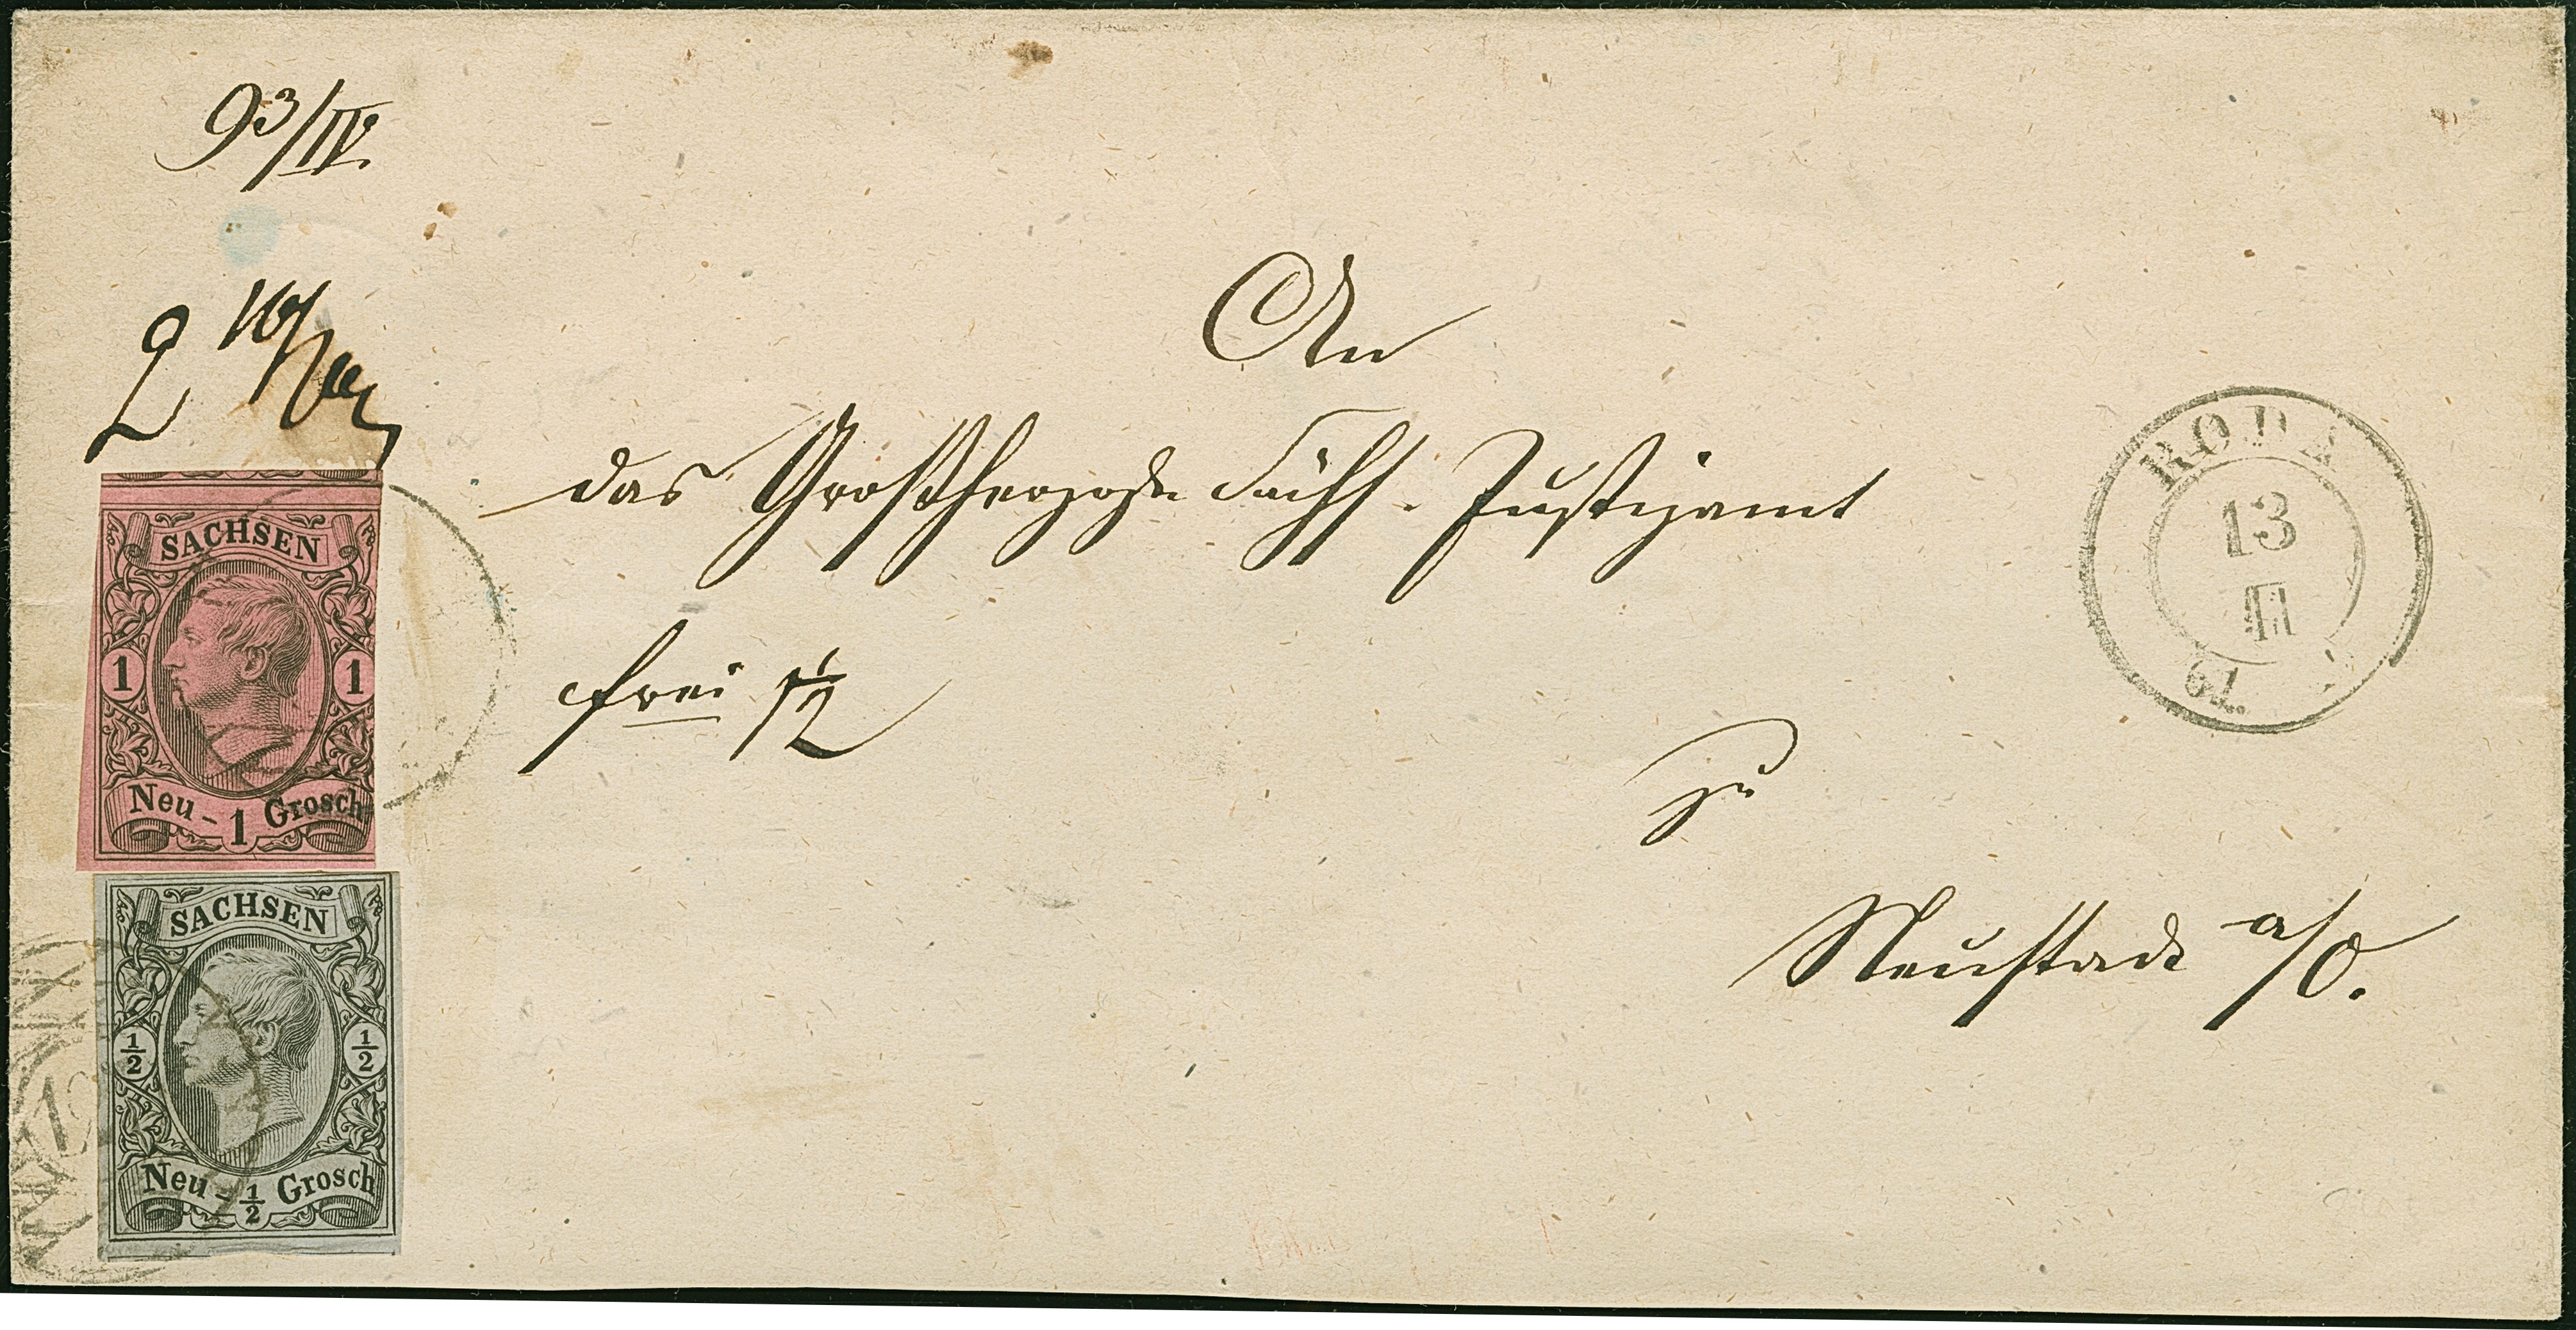 93/IV.
2
An
das Großherzogl. Sächs. Justizamt
frei 1/2
zu
Neustadt a/O.
RODA
13
II
61.
SACHSEN
1 1
Neu - 1 Grosch
SACHSEN
½ ½
Neu - ½ Grosch